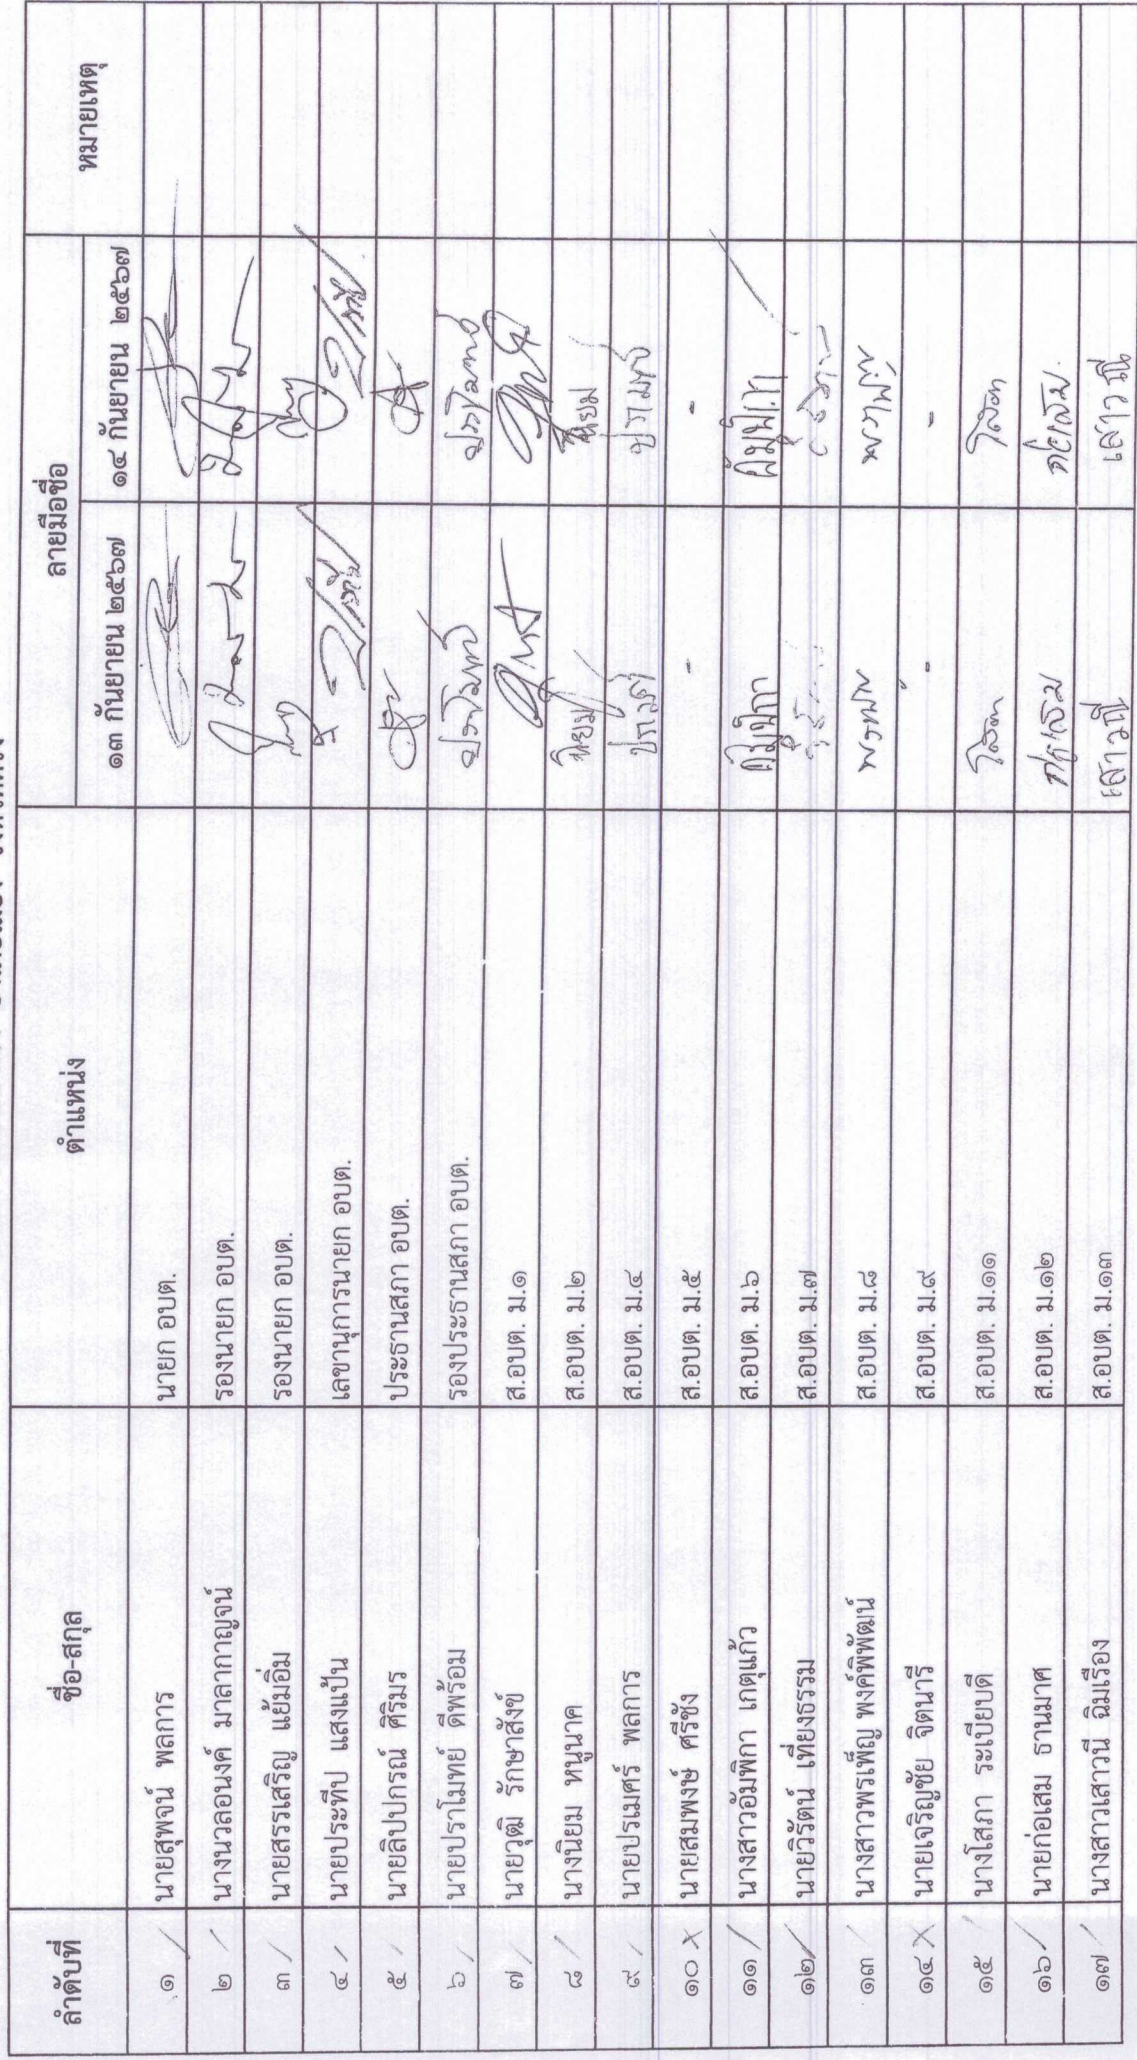 ลำดับที่ ชื่อ-สกุล ตำแหน่ง ลายมือชื่อ หมายเหตุ
๑๓ กันยายน ๒๕๖๗ ๑๔ กันยายน ๒๕๖๗
๑ / นายสุพจน์ พลการ นายก อบต.
๒ / นางนวลอนงค์ มาลากาญจน์ รองนายก อบต.
๓ / นายสรรเสริญ แย้มอิ่ม รองนายก อบต.
๔ / นายประทีป แสงแป้น เลขานุการนายก อบต.
๕ / นายลิปปกรณ์ ศิริมร ประธานสภา อบต.
๖ / นายปราโมทย์ ดีพร้อม รองประธานสภา อบต. ปราโมทย์ ปราโมทย์
๗ / นายวุฒิ รักษาสังข์ ส.อบต. ม.๑
๘ / นางนิยม หนูนาค ส.อบต. ม.๒ นิยม นิยม
๙ / นายปรเมศร์ พลการ ส.อบต. ม.๔
๑๐ X นายสมพงษ์ ศรีชัง ส.อบต. ม.๕ - -
๑๑ / นางสาวอัมพิกา เกตุแก้ว ส.อบต. ม.๖ อัมพิกา อัมพิกา
๑๒ / นายวิรัตน์ เที่ยงธรรม ส.อบต. ม.๗
๑๓ / นางสาวพรเพ็ญ พงค์พิพัฒน์ ส.อบต. ม.๘
๑๔ X นายเจริญชัย จิตนารี ส.อบต. ม.๙ - -
๑๕ / นางโสภา ระเบียบดี ส.อบต. ม.๑๑ โสภา โสภา
๑๖ / นายก่อเสม ธานมาศ ส.อบต. ม.๑๒
๑๗ / นางสาวเสาวนี ฉิมเรือง ส.อบต. ม.๑๓ เสาวณี เสาวณี